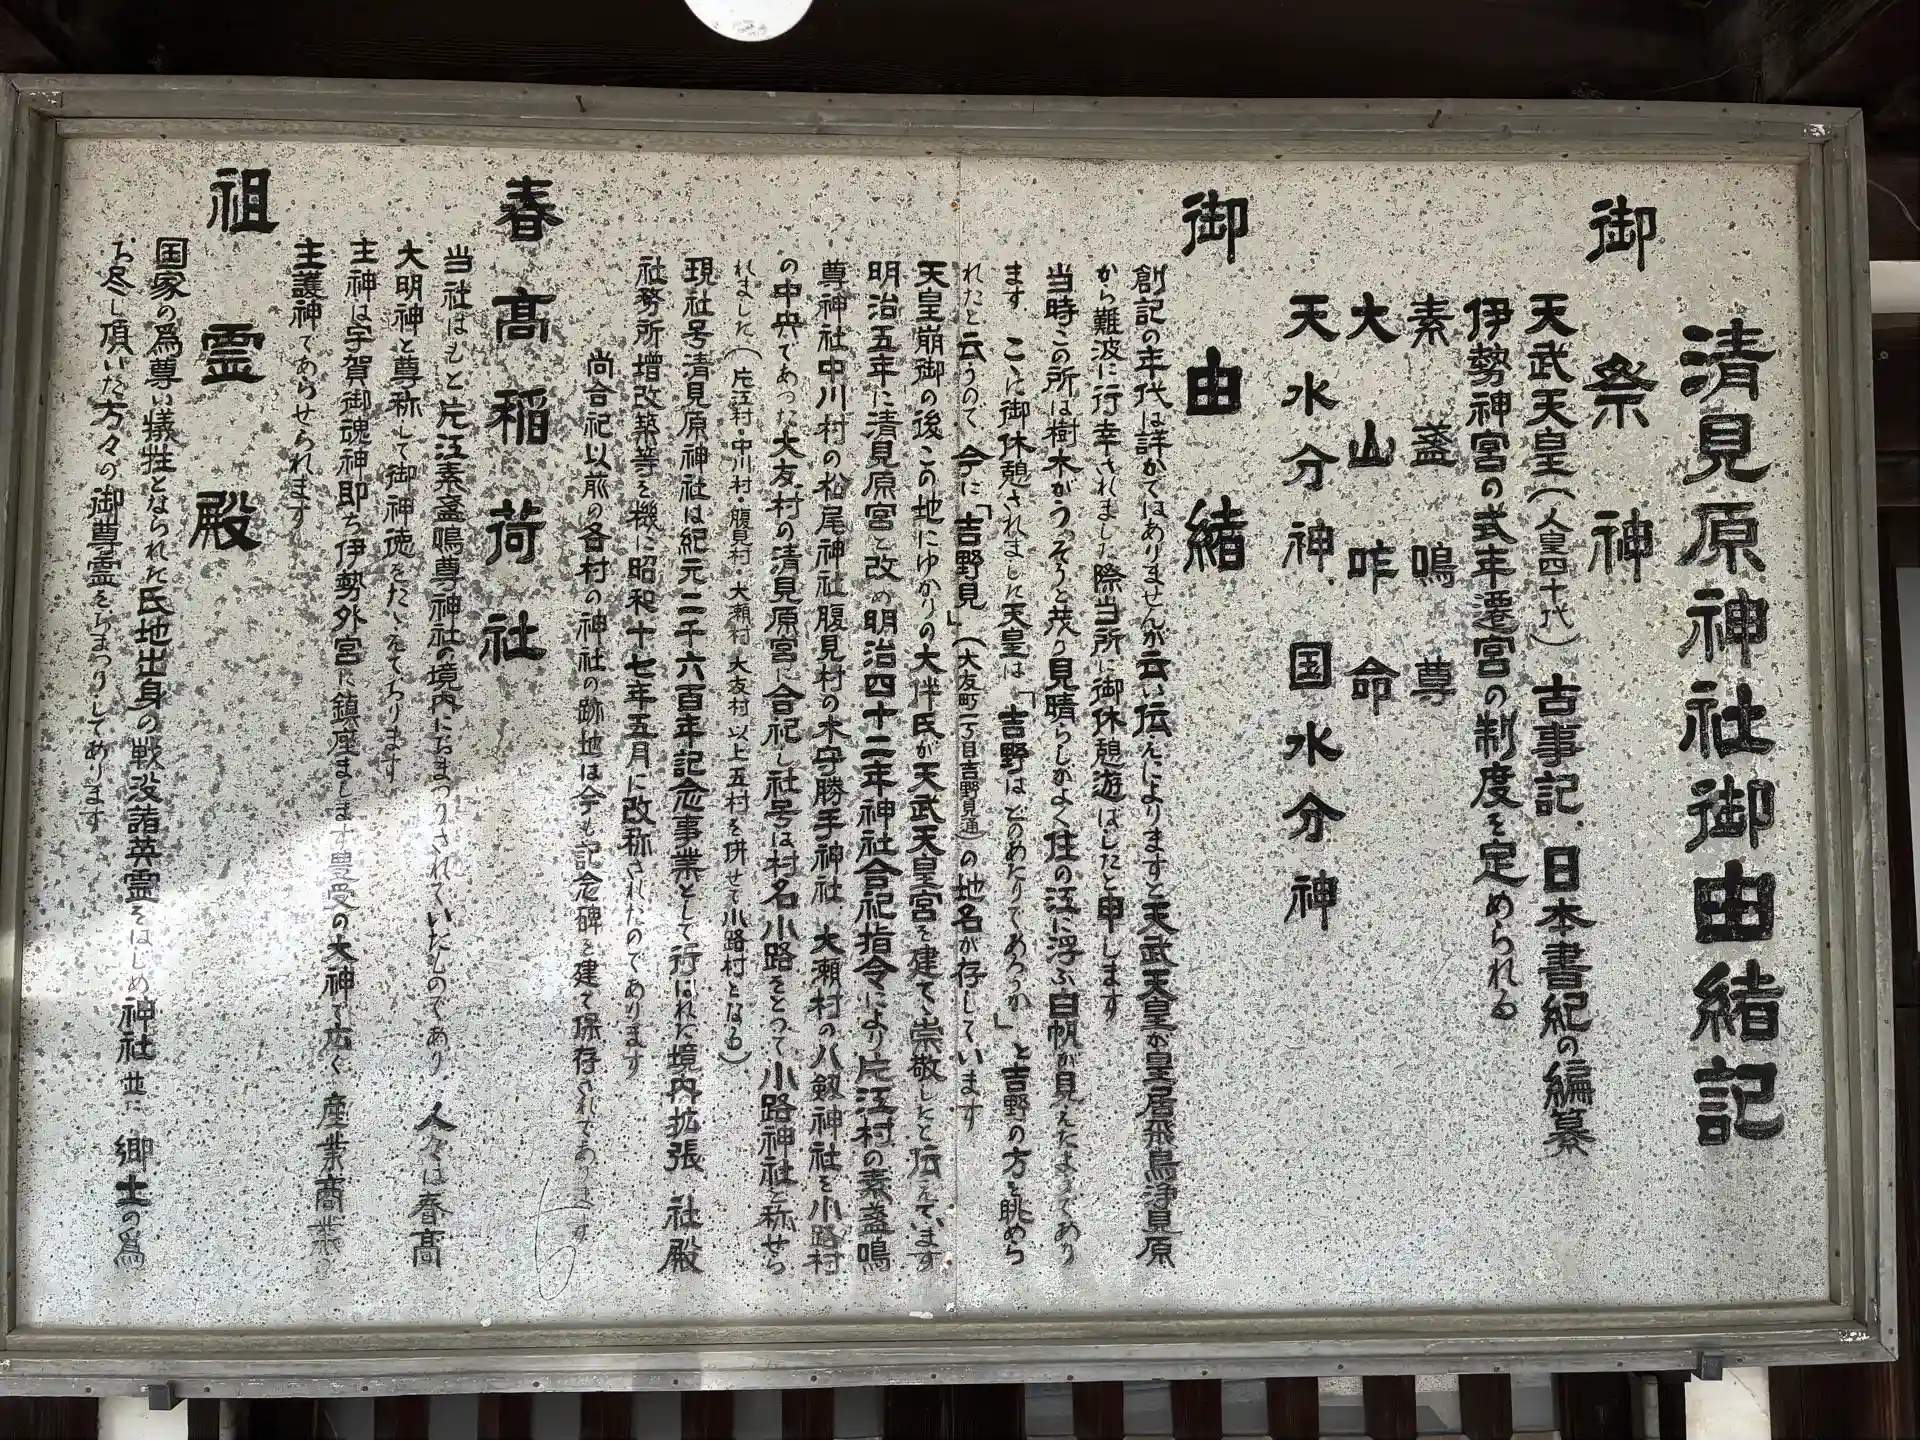 清見原神社御由緒記
御祭神
天武天皇(人皇四十代) 古事記、日本書紀の編纂
伊勢神宮の式年遷宮の制度を定められる
素盞嗚尊
大山咋命
天水分神、国水分神
御由緒
創記の年代は詳かではありませんが云い伝えによりますと天武天皇が皇居飛鳥浄見原
から難波に行幸されました際当所に御休憩遊ばしたと申します
当時この所は樹木がうっそうと茂り見晴らしがよく住の江に浮ぶ白帆が見えたようであり
ます ここに御休憩されました天皇は「吉野はどのあたりであろうか」と吉野の方を眺めら
れたと云うので、今に「吉野見」(大友町一丁目吉野見通)の地名が存しています
天皇崩御の後この地にゆかりの大伴氏が天武天皇宮を建てて崇敬したと伝えています
明治五年に清見原宮と改め明治四十二年神社合祀指令により片江村の素盞嗚
尊神社中川村の松尾神社腹見村の木守勝手神社、大瀬村の八劔神社を小路村
の中央であった大友村の清見原宮に合祀し社号は村名小路をとって小路神社と称せら
れました(片江村・中川村・腹見村 大瀬村 大友村以上五村を併せて小路村となる)
現社号清見原神社は紀元二千六百年記念事業として行われた境内拡張 社殿
社務所増改築等を機に昭和十七年五月に改称されたのであります
尚合祀以前の各村の神社の跡地は今も記念碑を建て保存されてあります
春高稲荷社
当社はもと片江素盞嗚尊神社の境内におまつりされていたものであり 人々は春高
大明神と尊称して御神徳をたゝえております
主神は宇賀御魂神即ち伊勢外宮に鎮座まします豊受の大神で広く 産業商業
主護神であらせられます
祖霊殿
国家の為尊い犠牲となられた氏地出身の戦没諸英霊をはじめ神社並に 郷土の為
お尽し頂いた方々の御尊霊をおまつりしてあります